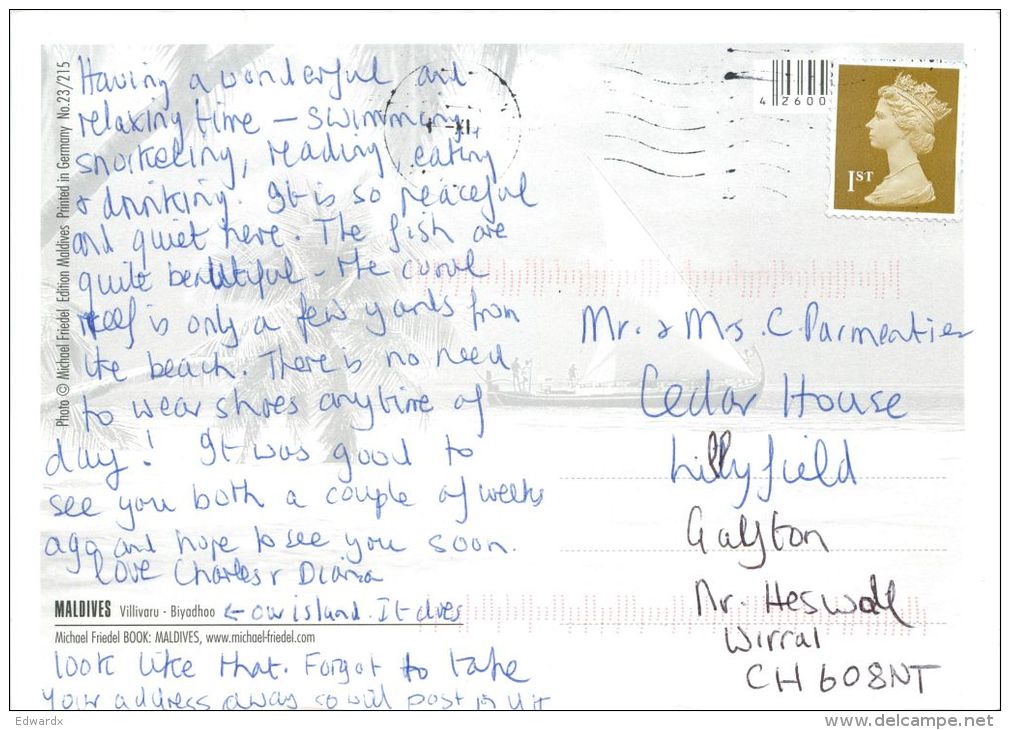 Having a wonderful and
relaxing time – swimming,
snorkeling, reading, eating
& drinking. It is so peaceful
and quiet here. The fish are
quite beautiful – the coral
reef is only a few yards from
the beach. There is no need
to wear shoes anytime of
day! It was good to
see you both a couple of weeks
ago and hope to see you soon.
Love Charles & Diana
MALDIVES Villivaru - Biyadhoo ← our island. It does
Michael Friedel BOOK: MALDIVES, www.michael-friedel.com
look like that. Forgot to take
your address away so will post in UK
Photo © Michael Friedel Edition Maldives Printed in Germany No.23/215
42600
1ST
Mr. & Mrs. C. Parmentier
Cedar House
Lillyfield
Gayton
Nr. Heswall
Wirral
CH60 8NT
Edwardx
www.delcampe.net